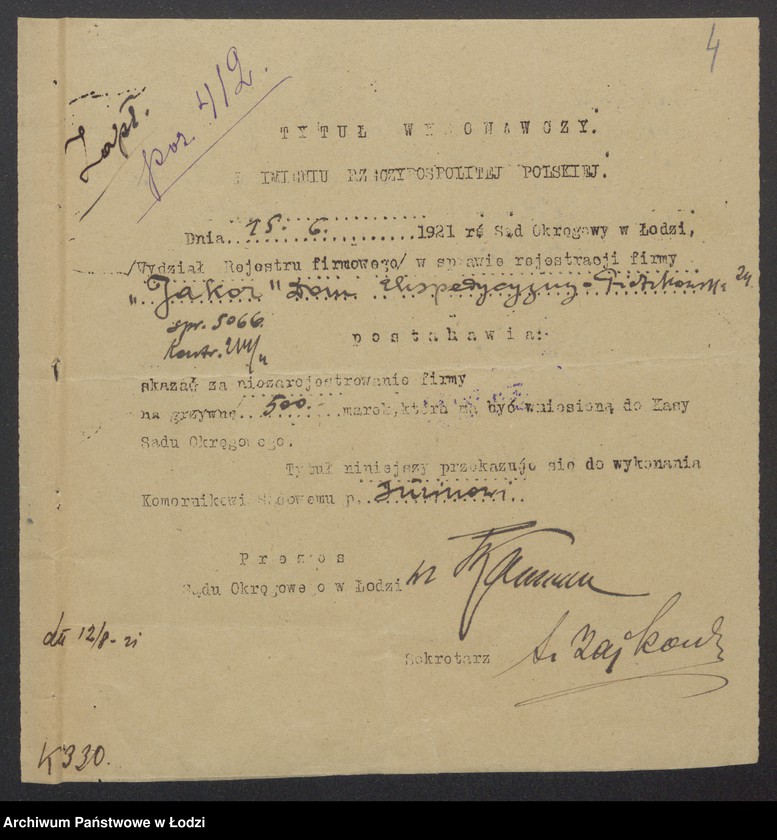 4
Zapł.
poz. 412.
TYTUŁ WYKONAWCZY.
W IMIENIU RZECZYPOSPOLITEJ POLSKIEJ.
Dnia 15. 6. 1921 r. Sąd Okręgowy w Łodzi,
/Wydział Rejestru firmowego/ w sprawie rejestracji firmy
„Jakor" Dom Ekspedycyjny - Piotrkowska 24
spr. 5066.
Kontr.
postanawia:
skazać za niezarejestrowanie firmy
na grzywnę 500. marek, która ma być wniesioną do Kasy
Sądu Okręgowego.
Tytuł niniejszy przekazuje się do wykonania
Komornikowi Sądowemu p.
Prezes
Sądu Okręgowego w Łodzi
Sekretarz
12/8-21
K 330.
Archiwum Państwowe w Łodzi